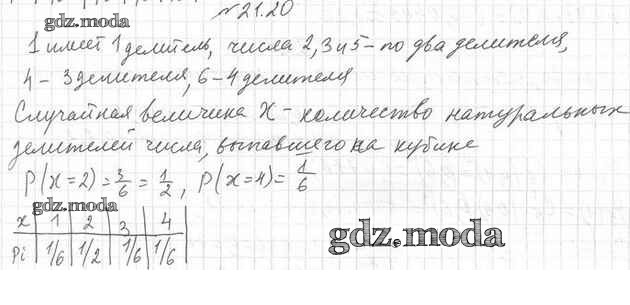 №21.20
gdz.moda
1 имеет 1 делитель, числа 2, 3 и 5 - по два делителя,
4 - 3 делителя, 6 - 4 делителя
Случайная величина X - количество натуральных
делителей числа, выпавшего на кубике
P(x=2) = 3/6 = 1/2, P(x=4) = 1/6
gdz.moda
x | 1 | 2 | 3 | 4
Pi | 1/6 | 1/2 | 1/6 | 1/6
gdz.moda